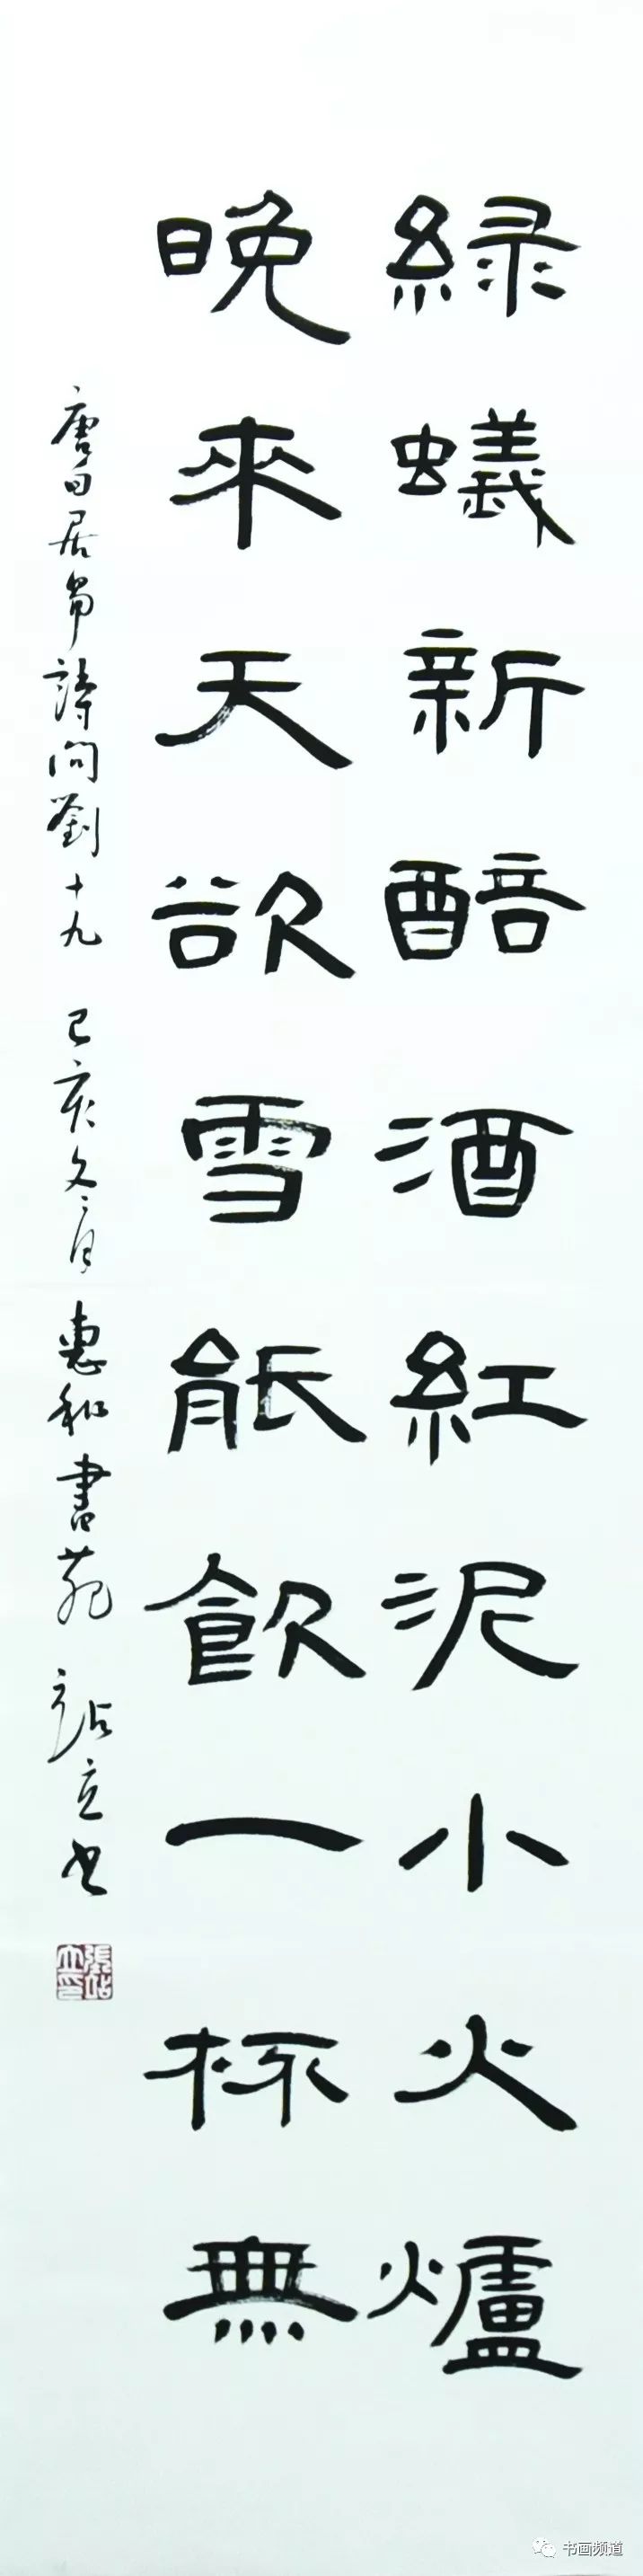 緑蟻新醅酒紅泥小火爐
晚來天欲雪能飲一杯無
唐白居易詩問劉十九 己亥冬月 惠和書苑 站立书
張站立印
书画频道